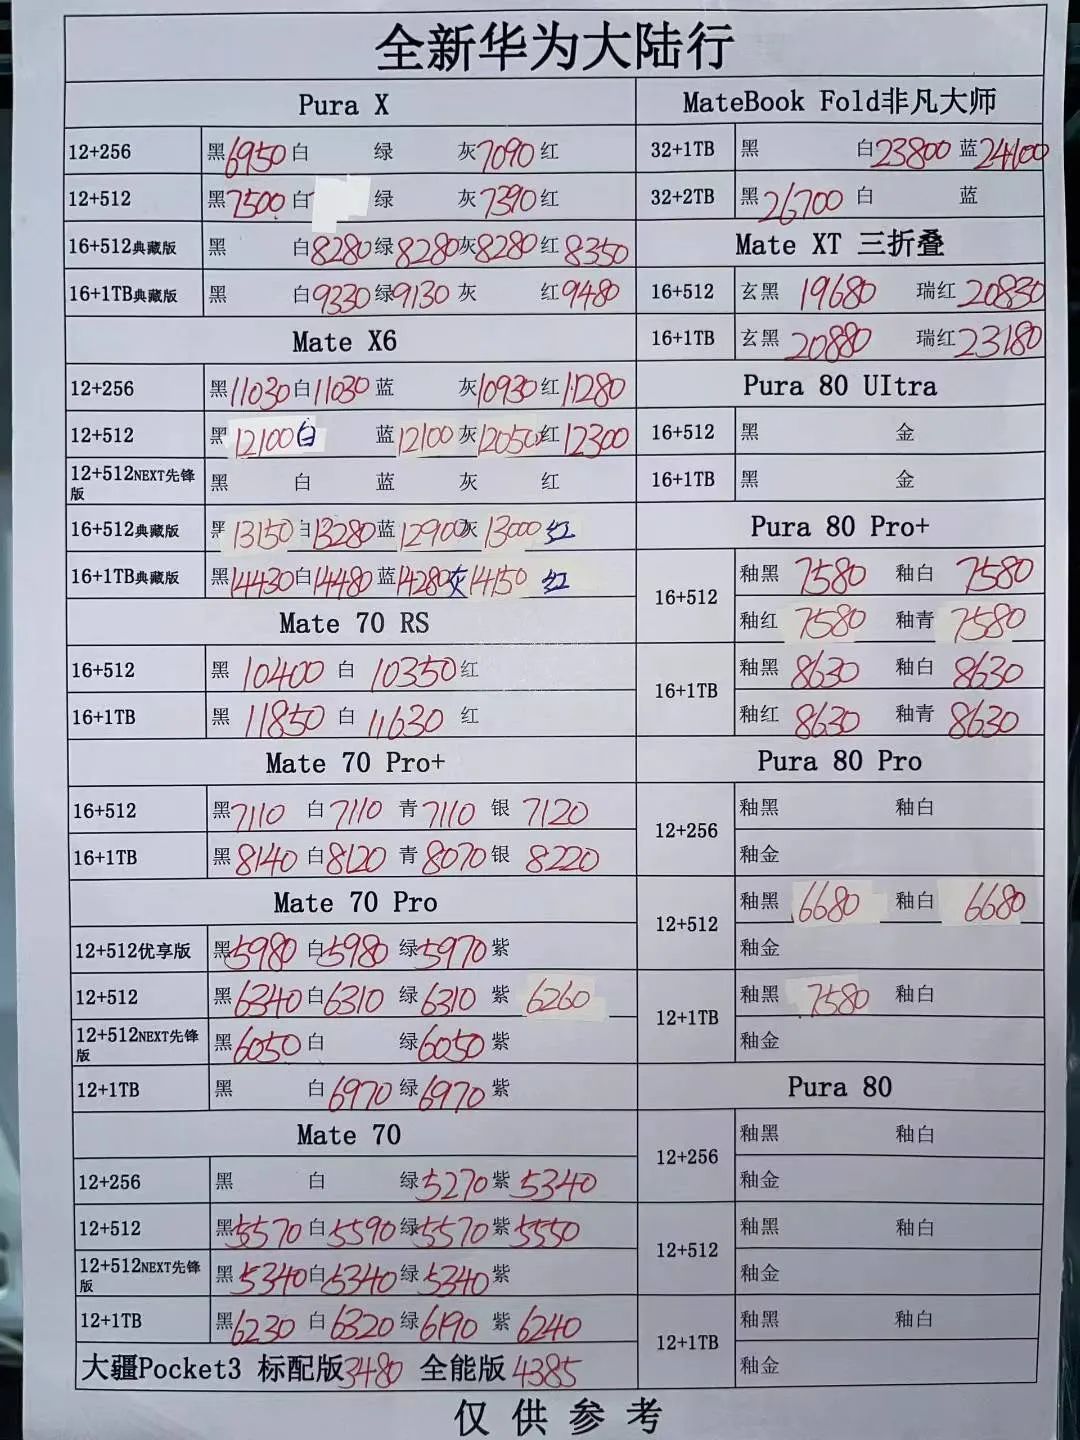 全新华为大陆行
Pura X
12+256 黑6950 白 绿 灰7090 红
12+512 黑7500 白 绿 灰7390 红
16+512典藏版 黑 白8280 绿8280 灰8280 红8350
16+1TB典藏版 黑 白9330 绿9130 灰 红9480
Mate X6
12+256 黑11030 白11030 蓝 灰10930 红11280
12+512 黑12100 白 蓝12100 灰12050 红12300
12+512NEXT先锋
版 黑 白 蓝 灰 红
16+512典藏版 黑13150 白13280 蓝12900 灰13000 红
16+1TB典藏版 黑14430 白14480 蓝14280 灰14150 红
Mate 70 RS
16+512 黑10400 白10350 红
16+1TB 黑11850 白11630 红
Mate 70 Pro+
16+512 黑7110 白7110 青7110 银7120
16+1TB 黑8140 白8120 青8070 银8220
Mate 70 Pro
12+512优享版 黑5980 白5980 绿5970 紫
12+512 黑6340 白6310 绿6310 紫6260
12+512NEXT先锋
版 黑6050 白 绿6050 紫
12+1TB 黑 白6970 绿6970 紫
Mate 70
12+256 黑 白 绿5270 紫5340
12+512 黑5570 白5590 绿5570 紫5550
12+512NEXT先锋
版 黑5340 白5340 绿5340 紫
12+1TB 黑6230 白6320 绿6190 紫6240
大疆Pocket3 标配版3480 全能版4385
MateBook Fold非凡大师
32+1TB 黑 白23800 蓝24100
32+2TB 黑26700 白 蓝
Mate XT 三折叠
16+512 玄黑 19680 瑞红20830
16+1TB 玄黑 20880 瑞红23180
Pura 80 UItra
16+512 黑 金
16+1TB 黑 金
Pura 80 Pro+
16+512 釉黑 7580 釉白 7580
釉红 7580 釉青 7580
16+1TB 釉黑 8630 釉白 8630
釉红 8630 釉青 8630
Pura 80 Pro
12+256 釉黑 釉白
釉金
12+512 釉黑 6680 釉白 6680
釉金
12+1TB 釉黑 7580 釉白
釉金
Pura 80
12+256 釉黑 釉白
釉金
12+512 釉黑 釉白
釉金
12+1TB 釉黑 釉白
釉金
仅供参考